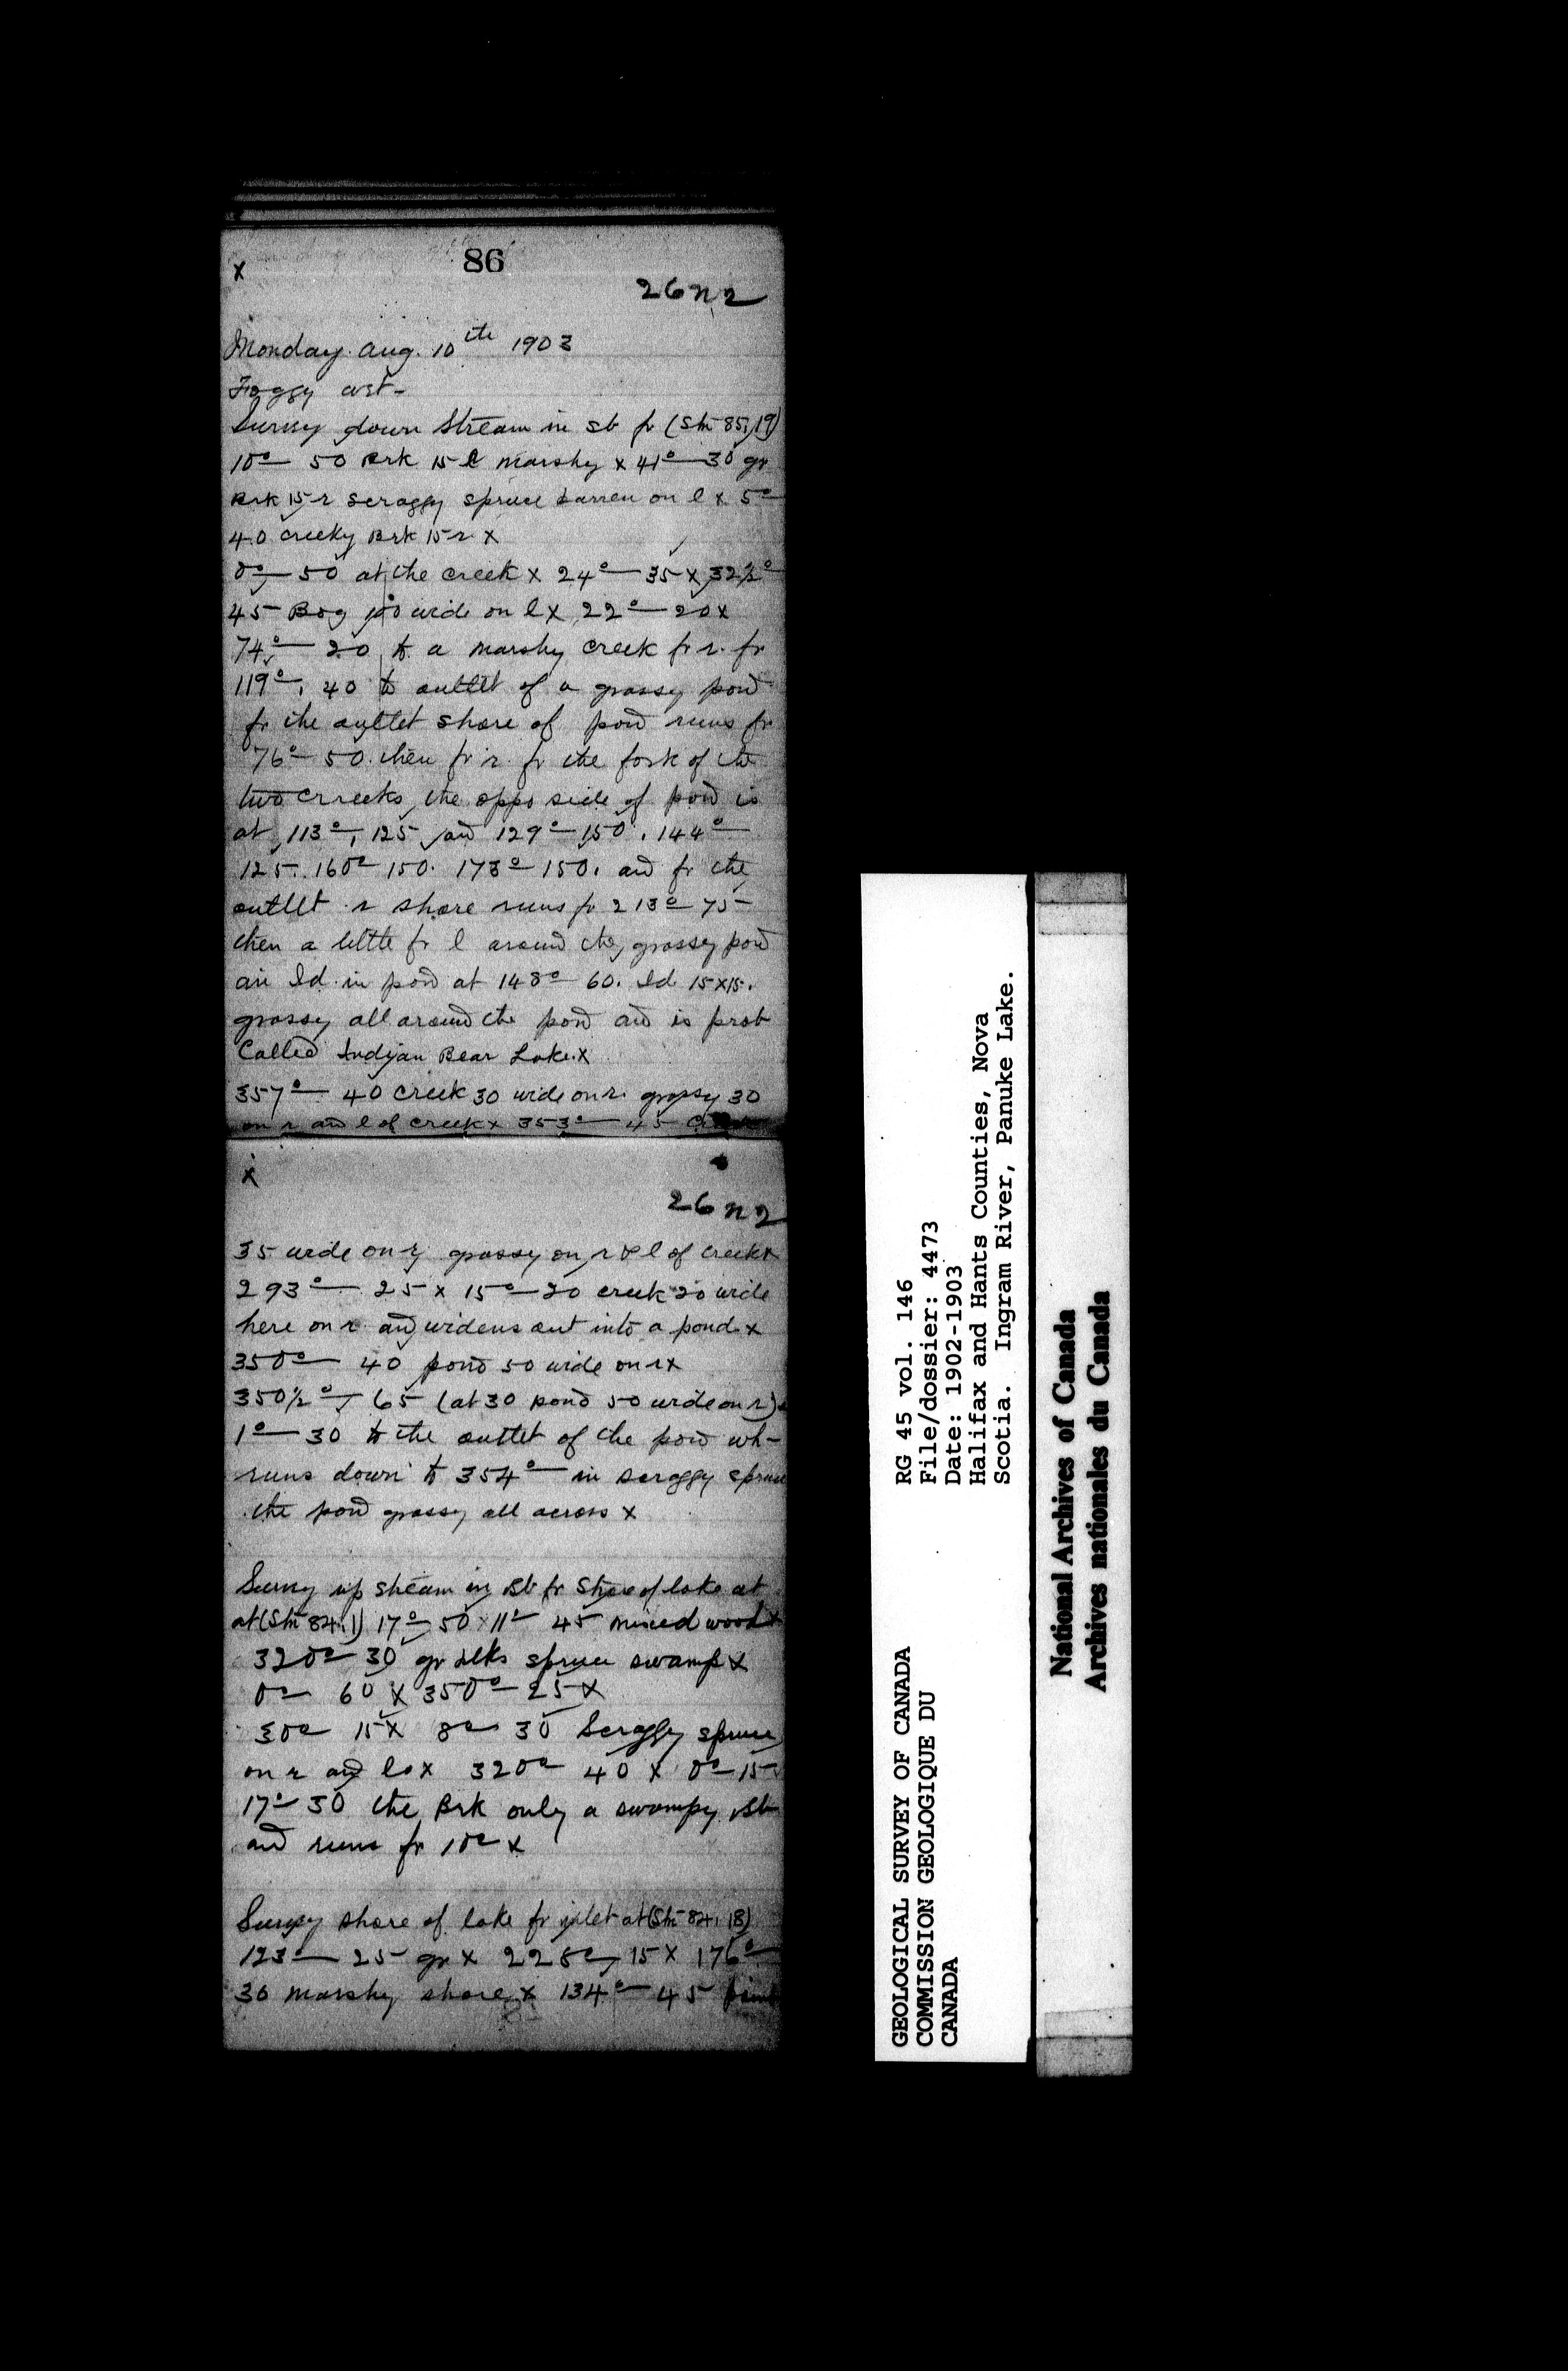 x
86
26 n 2
Monday Aug. 10th 1903
Foggy
Survey down stream in sb fr (Stn 85, 19)
10° 50 Brk 15 l marshy x 41° 30 gr
Brk 15 r scraggy spruce barren on l x 5°
40 creeky Brk 15 r x
0° 50 at the creek x 24° 35 x 32½°
45 Bog 100 wide on l x 22° 20 x
74° 20 to a marshy creek fr r. fr
119°, 40 to outlet of a grassy pond
fr the outlet shore of pond runs fr
76° 50. then fr r. fr the fork of the
two creeks, the oppo side of pond is
at 113°, 125 and 129° 150. 144°
125. 160° 150. 173° 150. and fr the
outlet r shore runs fr 213° 75
then a little fr l around the grassy pond
an Id. in pond at 148° 60. Id 15x15.
grassy all around the pond and is prob
Called Indian Bear Lake x
357° 40 creek 30 wide on r. grassy 30
on r and l of creek x 353° 45
x
26 n 2
35 wide on r grassy on r & l of creek x
293° 25 x 15° 20 creek 20 wide
here on r and widens out into a pond x
350° 40 pond 50 wide on r x
350½° 65 (at 30 pond 50 wide on r) x
1° 30 to the outlet of the pond wh
runs down to 354° in scraggy spruce
the pond grassy all across x
Survey up stream in sb fr shore of lake at
at (Stn 84, 1) 17° 50 x 11° 45 mixed wood x
320° 30 gr blks spruce swamp x
0° 60 x 350° 25 x
30° 15 x 8° 30 Scraggy spruce
on r and l x 320° 40 x 0° 15
17° 30 the Brk only a swampy sb
and runs fr 10° x
Survey shore of lake fr inlet at (Stn 84, 18)
123° 25 gr x 228° 15 x 176°
30 marshy shore x 134° 45 point
GEOLOGICAL SURVEY OF CANADA
COMMISSION GEOLOGIQUE DU
CANADA
RG 45 vol. 146
File/dossier: 4473
Date: 1902-1903
Halifax and Hants Counties, Nova
Scotia. Ingram River, Panuke Lake.
National Archives of Canada
Archives nationales du Canada